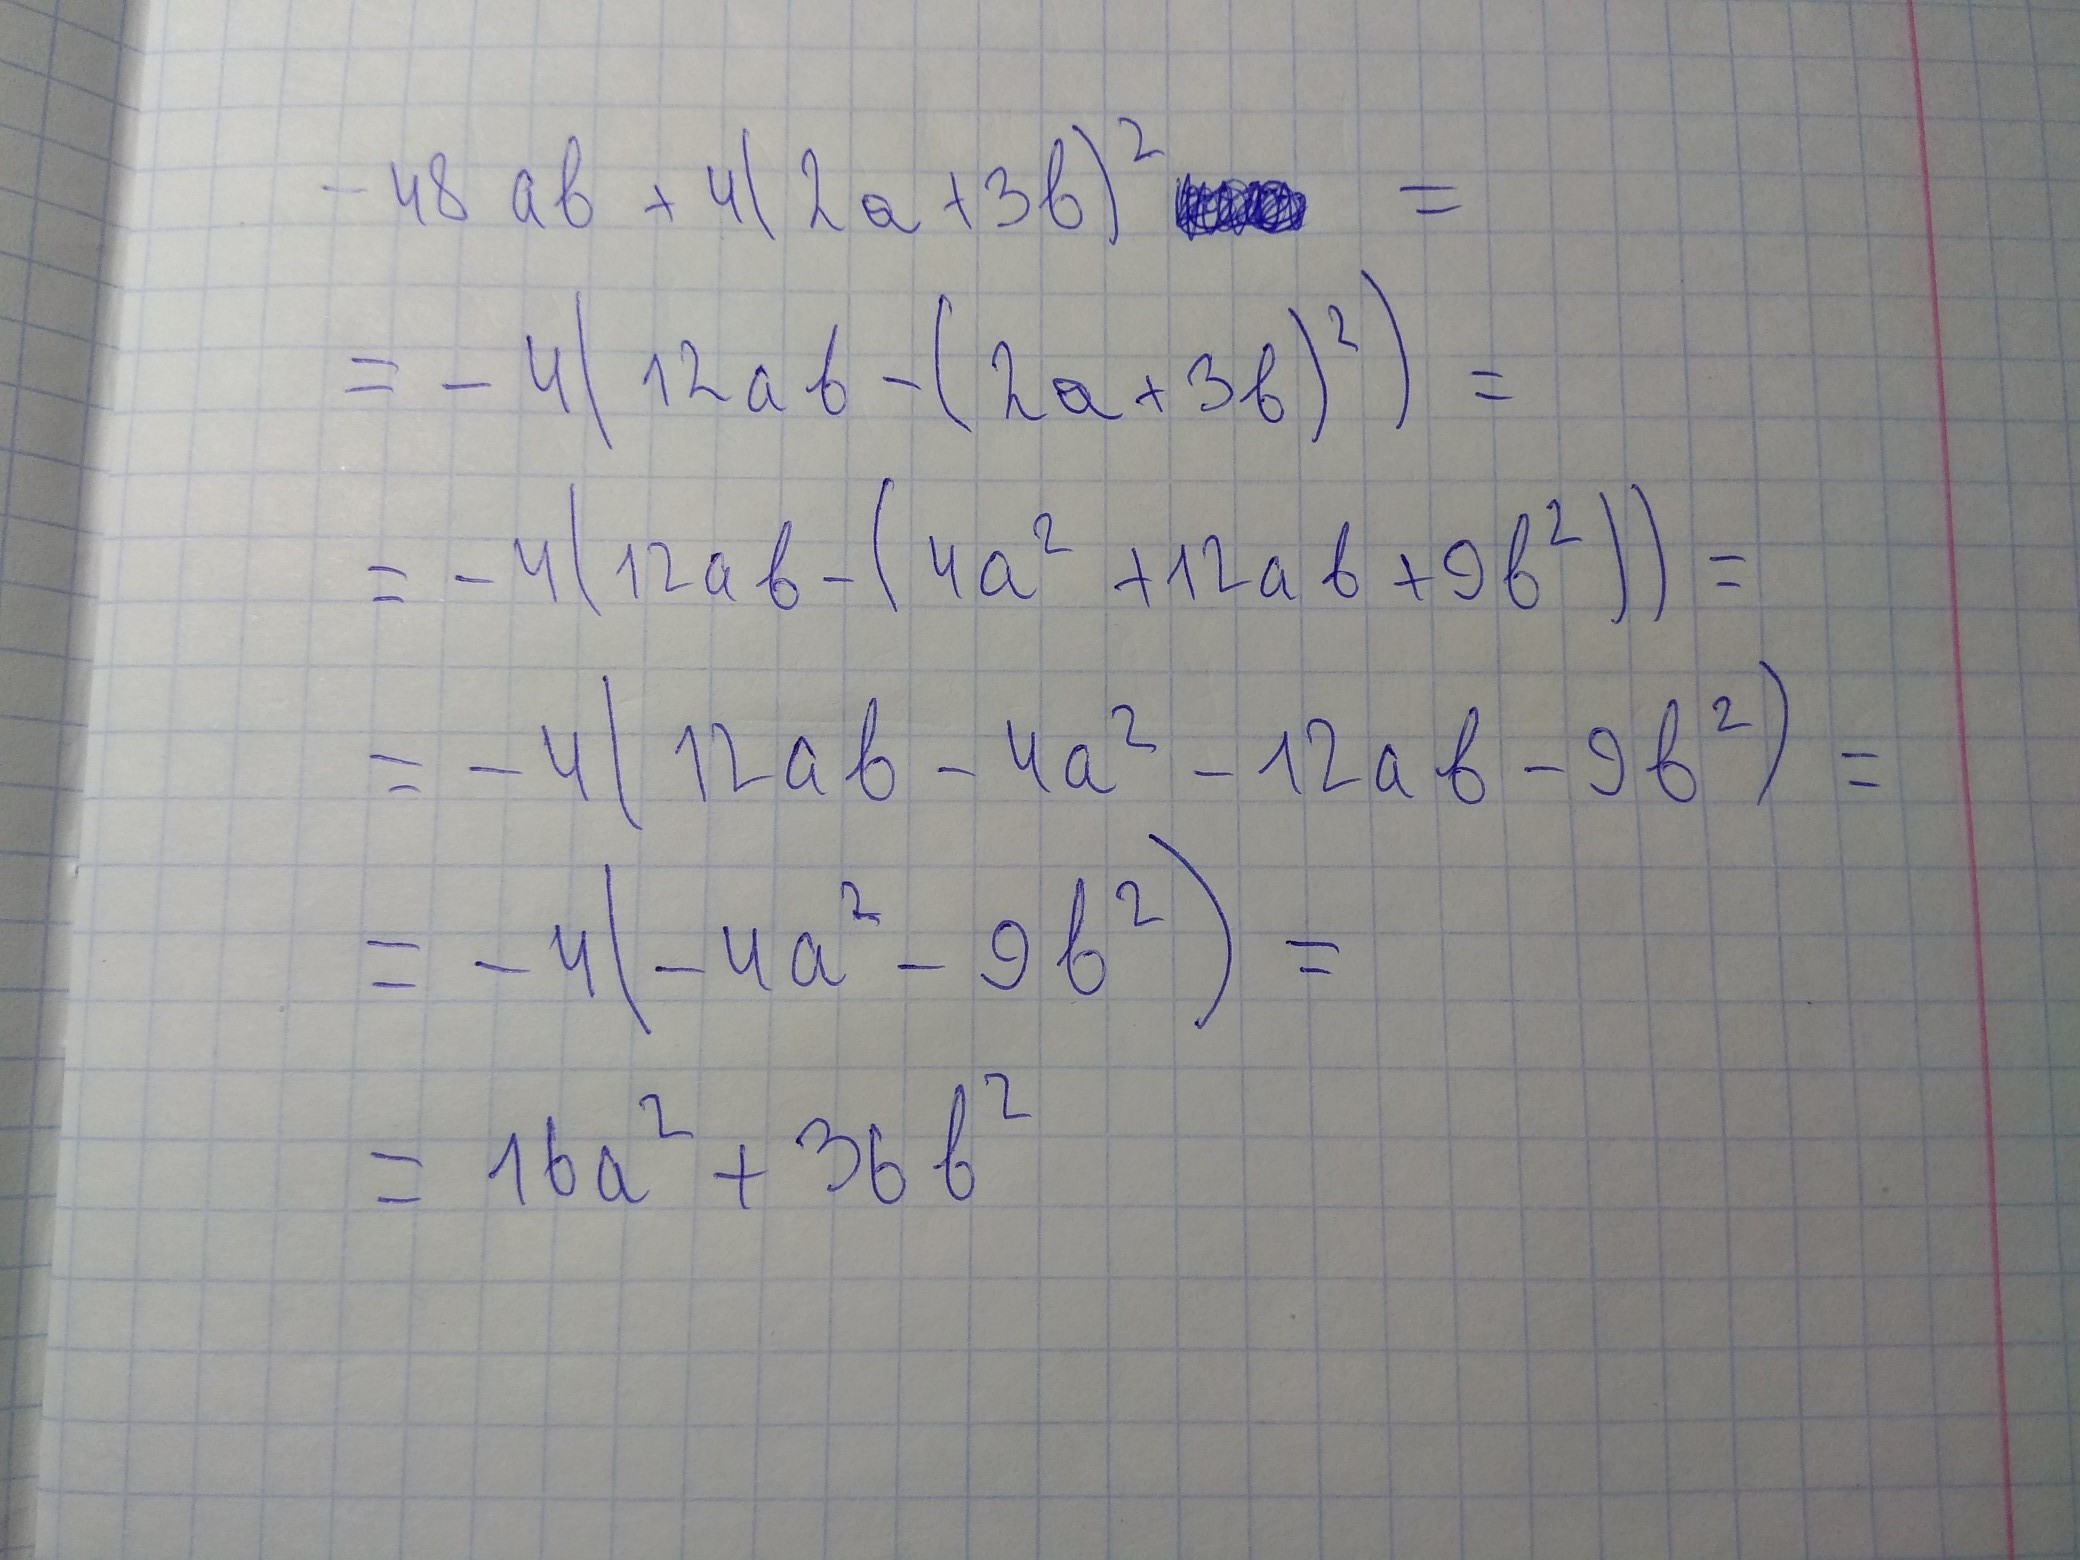 -48ab+4(2a+3b)² =
= -4(12ab-(2a+3b)²) =
= -4(12ab-(4a²+12ab+9b²)) =
= -4(12ab-4a²-12ab-9b²) =
= -4(-4a²-9b²) =
= 16a²+36b²